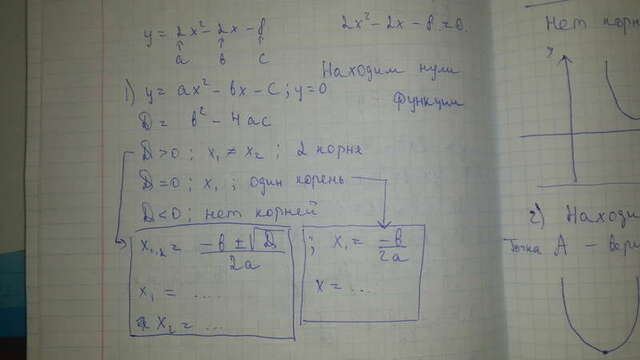 y = 2x² - 2x - 8
2x² - 2x - 8 = 0.
а в с
Находим нули
функции
1) y = ax² - вx - c; y=0
D = в² - 4ac
D>0; x₁ ≠ x₂; 2 корня
D=0; x₁; один корень
D<0; нет корней
x₁,₂ = (-в ± √D) / 2a
; x₁ = -в / 2a
x₁ = ....
x = ...
x₂ = ...
Нет корн
y
2) Находи
Точка A - вер